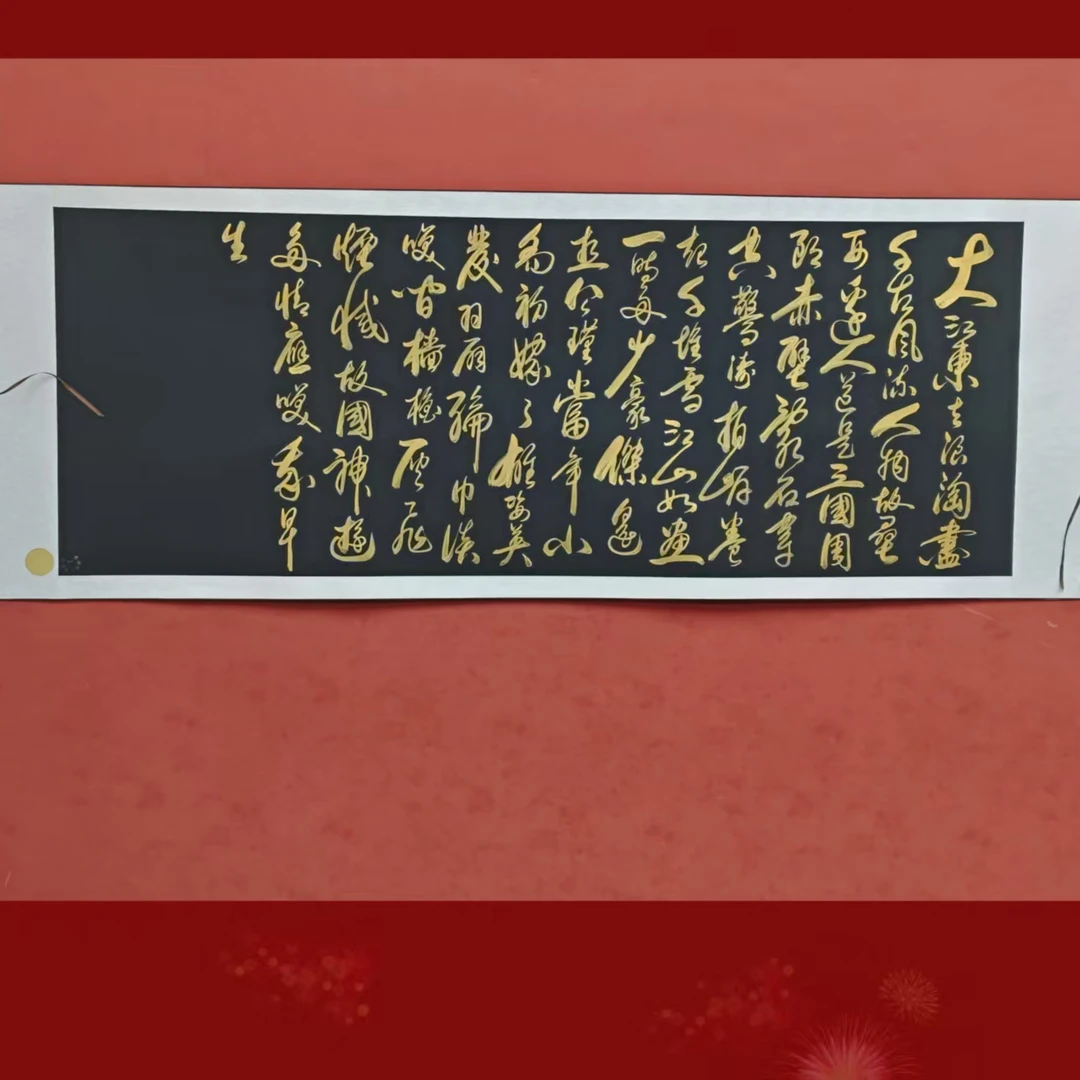 大江東去浪淘盡
千古風流人物故壘
西邊人道是三國周
郎赤壁亂石穿
空驚濤拍岸卷
起千堆雪江山如畫
一時多少豪傑遙
想公瑾當年小
喬初嫁了雄姿英
發羽扇綸巾談
笑間檣櫓灰飛
煙滅故國神遊
多情應笑我早
生